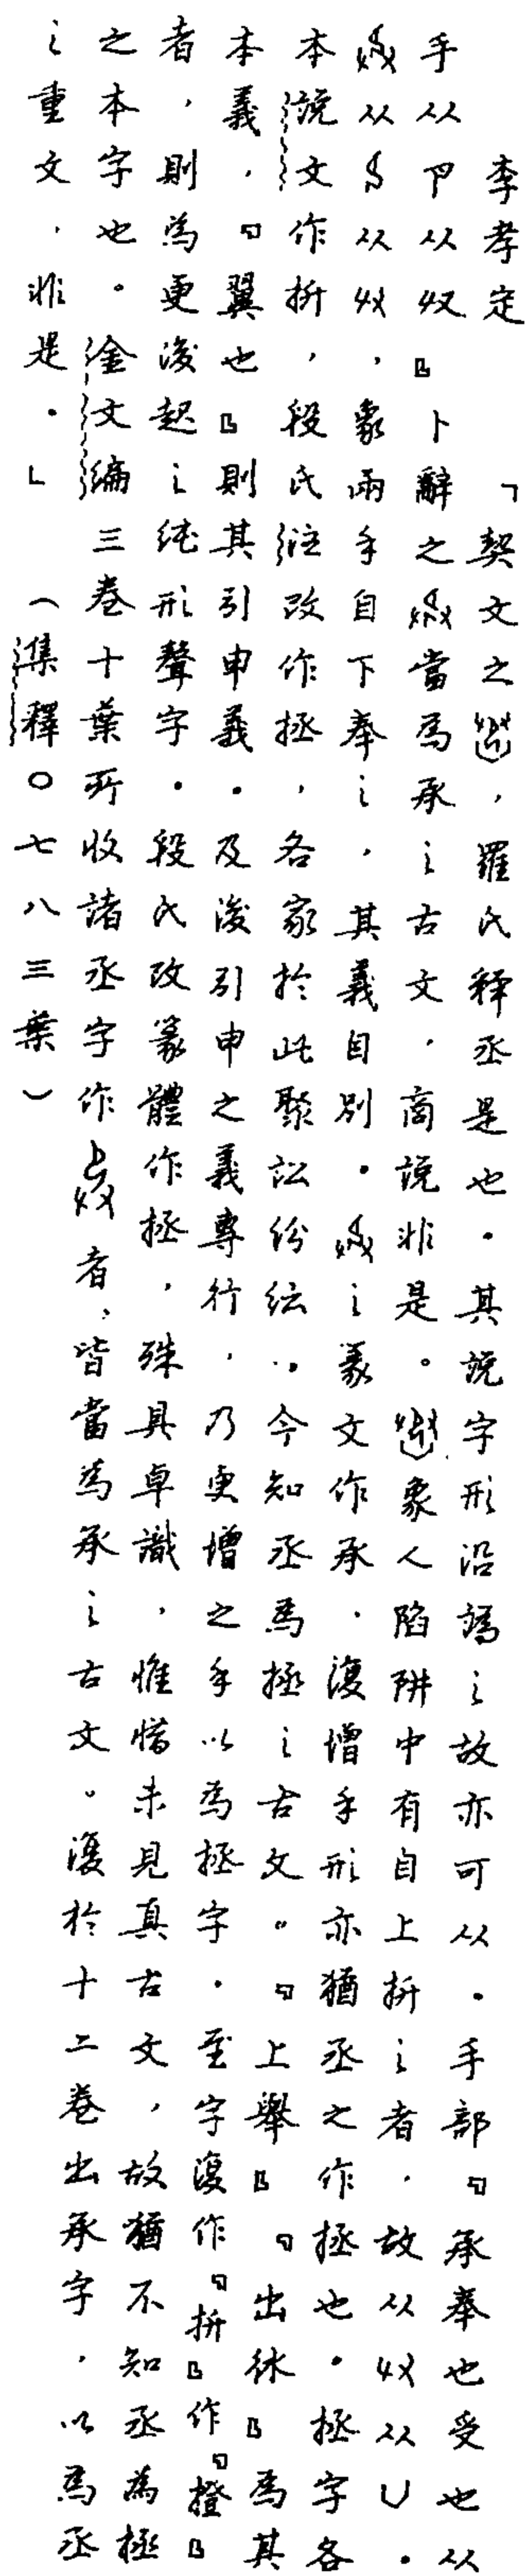 李孝定 「契文之，羅氏释丞是也．其説字形沿譌之故亦可从．手部『承奉也受也从
手从卪从収』卜辭之當爲承之古文，商説非是。象人陷阱中有自上拼之者，故从収从凵．
从从収，象兩手自下奉之，其義自別．之篆文作承．復增手形亦猶丞之作拯也．拯字各
本説文作拼，段氏注改作拯，各家於此聚訟紛纭．．今知丞爲拯之古文。『上舉』『出休』爲其
本義，『翼也』則其引申義．及後引申之義專行，乃更增之手以爲拯字．至字復作『拼』作『撜』
者，則爲更後起之純形聲字．段氏改篆體作拯，殊具卓識，惟惜未見真古文，故猶不知丞爲極
之本字也。金文編三卷十葉所收諸丞字作者，皆當爲承之古文。復於十二卷出承字，以爲丞
之重文，非是．」 （集釋〇七八三葉）